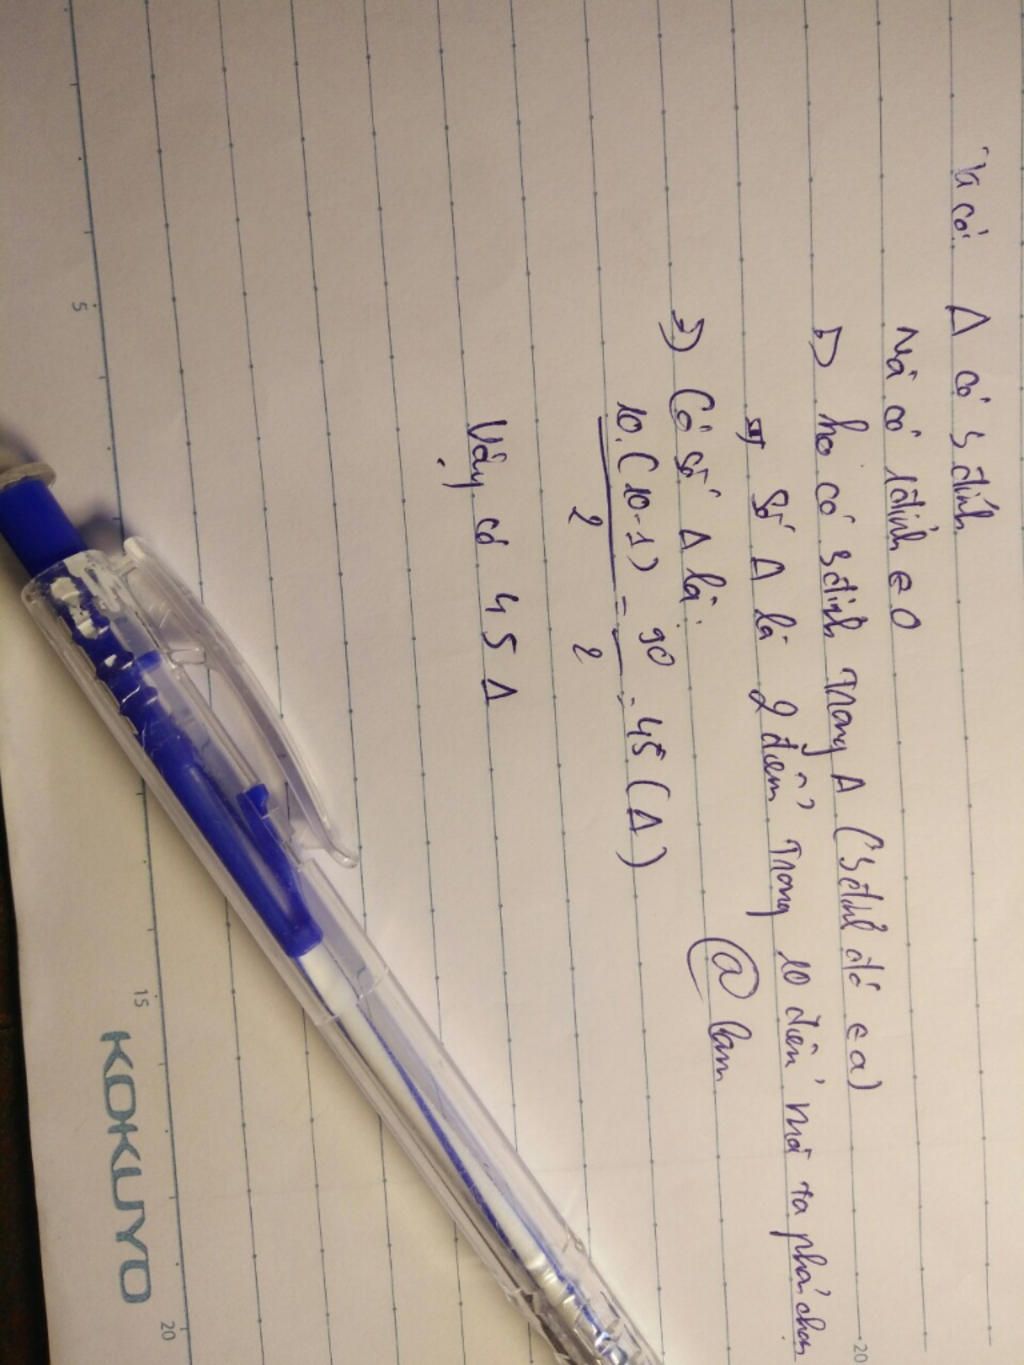 Ta có: Δ có 3 đỉnh
Mà có 1 đỉnh ∈ O
=> có 3 đỉnh trong Δ (3 đỉnh đó ∈ a)
=> Số Δ là 2 điểm trong 10 điểm mà ta phải chọn
@ lam
=> Có số Δ là:
10.(10-1)/2 = 90/2 = 45 (Δ)
Vậy có 45 Δ
5
15
20
20
KOKUYO